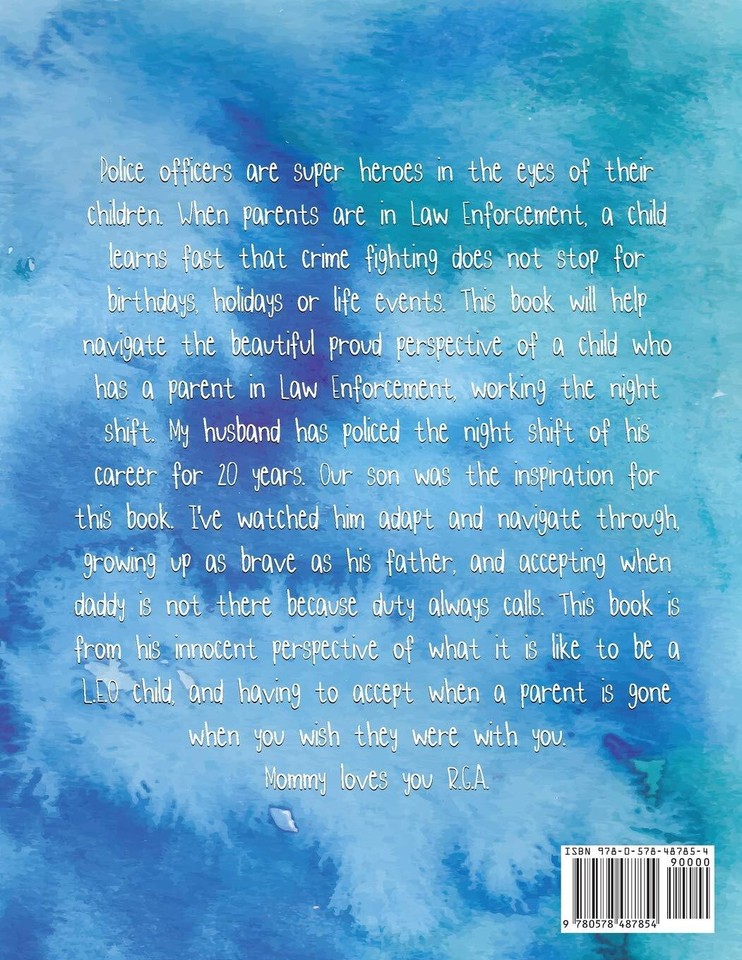 Police officers are super heroes in the eyes of their
children. When parents are in Law Enforcement, a child
learns fast that crime fighting does not stop for
birthdays, holidays or life events. This book will help
navigate the beautiful proud perspective of a child who
has a parent in Law Enforcement, working the night
shift. My husband has policed the night shift of his
career for 20 years. Our son was the inspiration for
this book. I've watched him adapt and navigate through,
growing up as brave as his father, and accepting when
daddy is not there because duty always calls. This book is
from his innocent perspective of what it is like to be a
L.E.O child, and having to accept when a parent is gone
when you wish they were with you.
Mommy loves you R.G.A.
ISBN 978-0-578-48785-4
90000
9 780578 487854